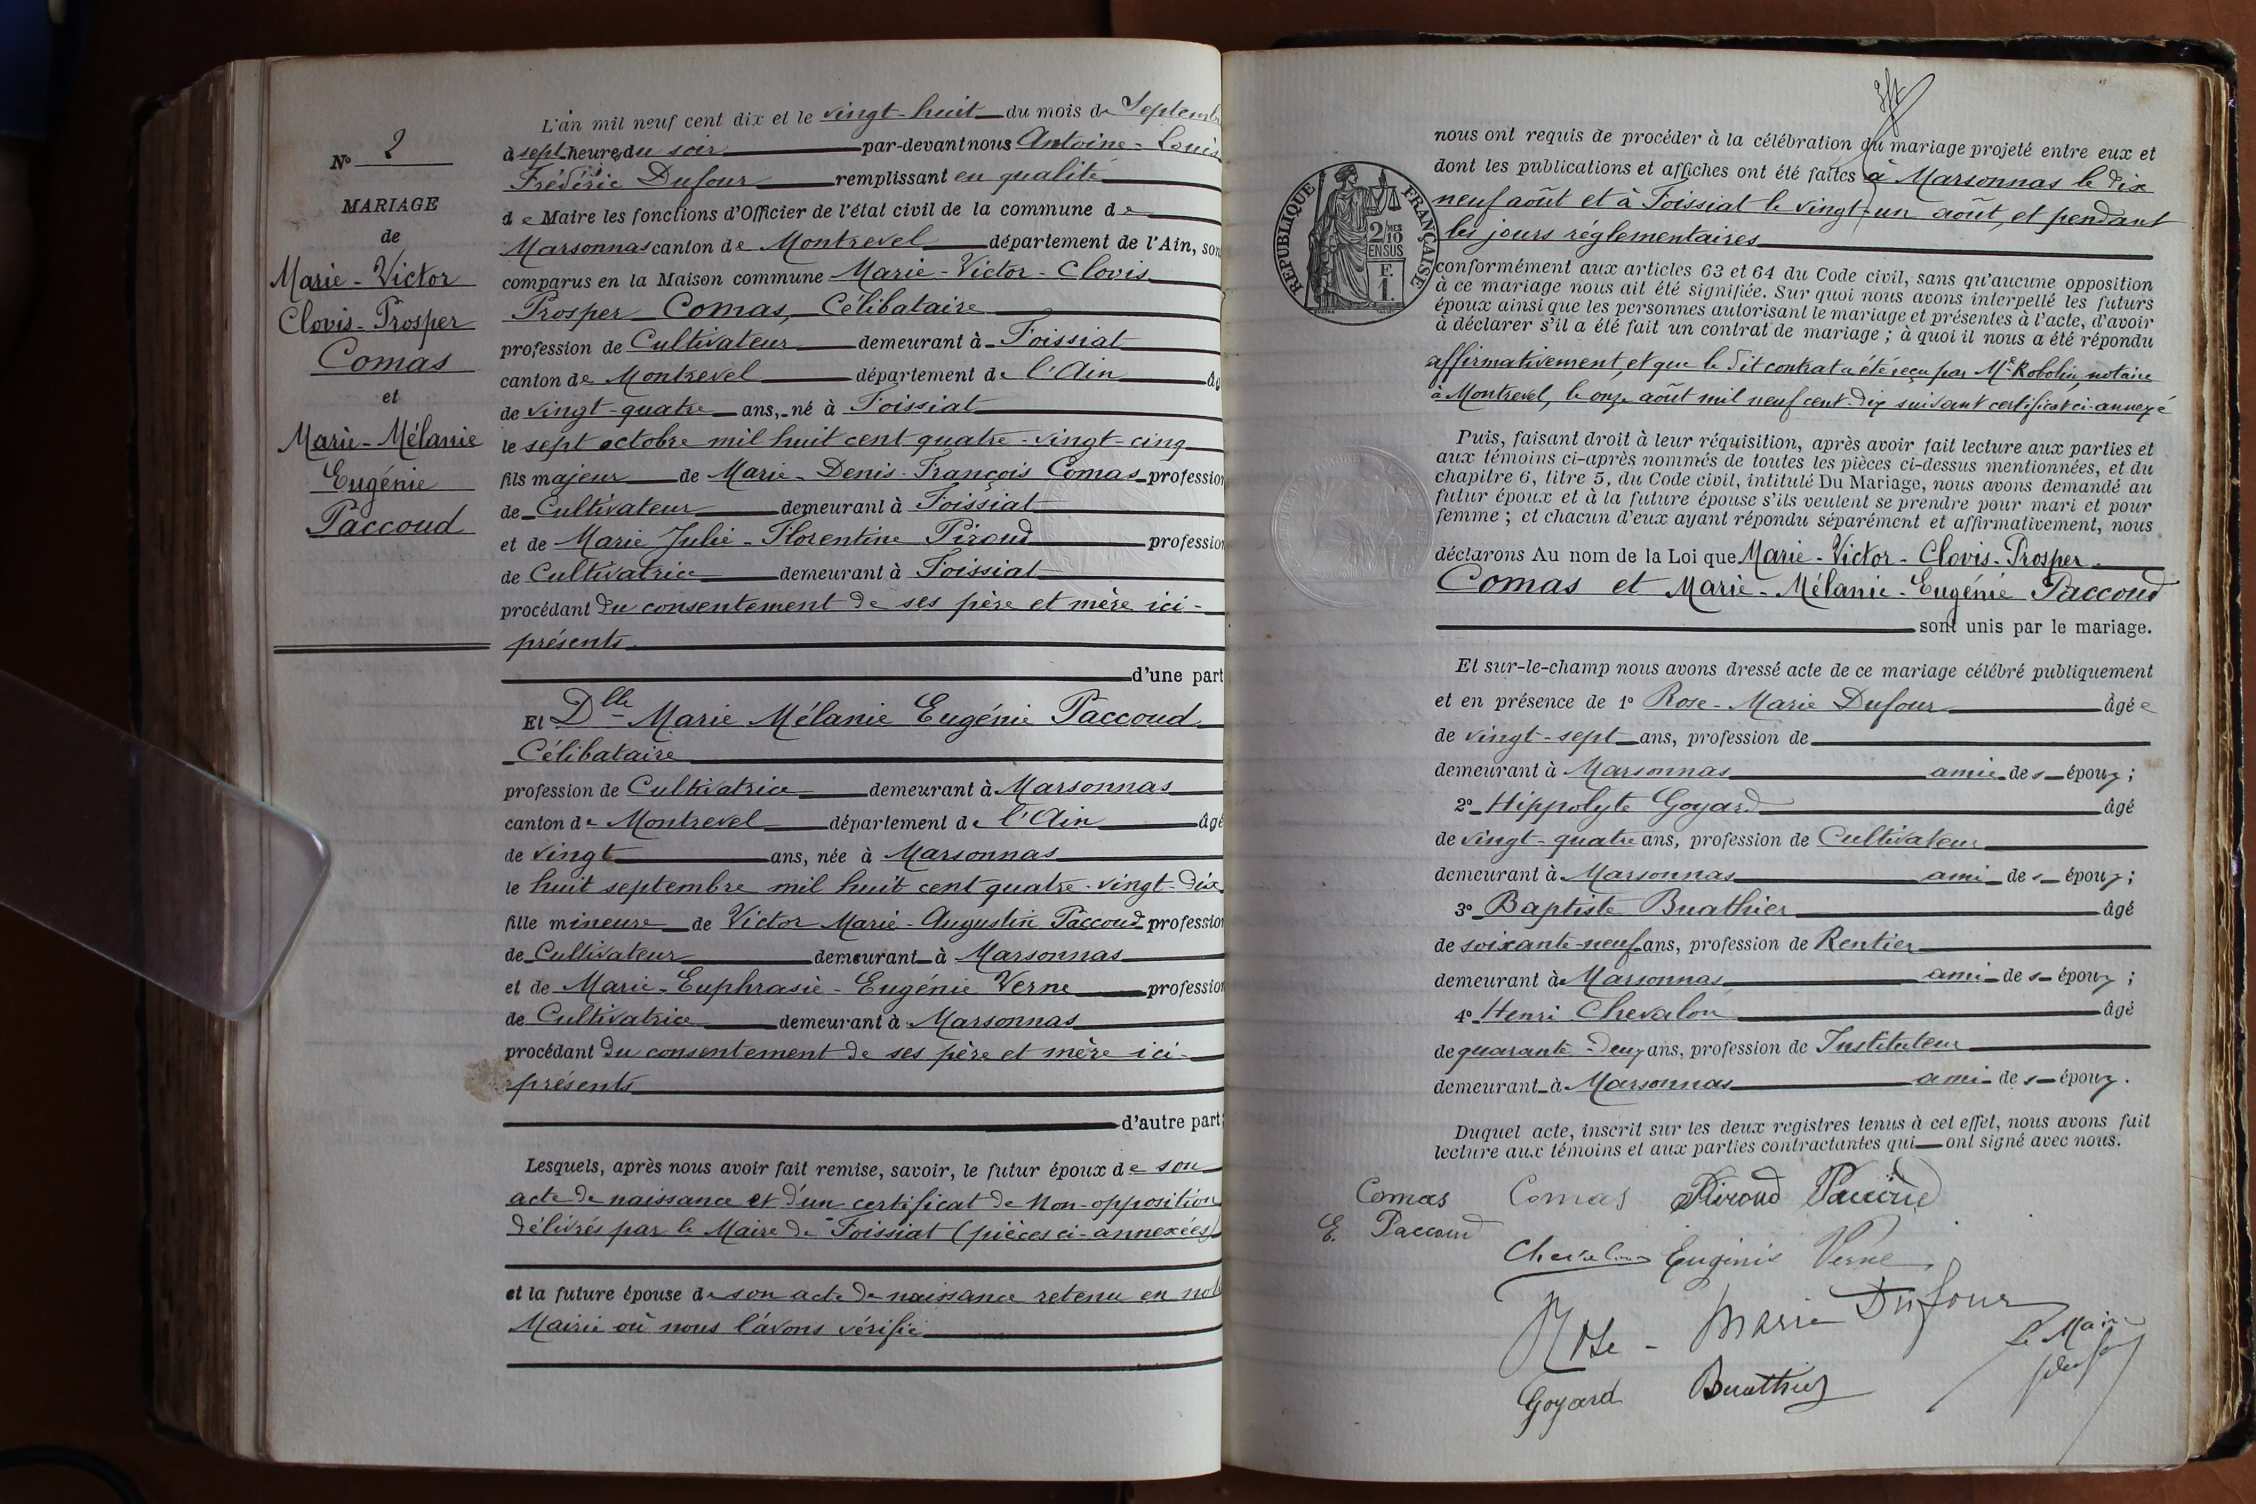 N° 2
MARIAGE
de
Marie-Victor
Clovis-Prosper
Comas
et
Marie-Mélanie
Eugénie
Paccoud
L'an mil neuf cent dix et le vingt-huit du mois de Septemb
à sept heures du soir par-devant nous Antoine-Louis
Frédéric Dufour remplissant en qualité
de Maire les fonctions d'Officier de l'état civil de la commune de
Marsonnas canton de Montrevel département de l'Ain, son
comparus en la Maison commune Marie-Victor-Clovis
Prosper Comas, Célibataire
profession de Cultivateur demeurant à Foissiat
canton de Montrevel département de l'Ain âg
de vingt-quatre ans, né à Foissiat
le sept octobre mil huit cent quatre-vingt-cinq
fils majeur de Marie-Denis-François Comas profession
de Cultivateur demeurant à Foissiat
et de Marie Julie-Florentine Piroud profession
de Cultivatrice demeurant à Foissiat
procédant du consentement de ses père et mère ici-
présents
d'une part
Et Dlle Marie Mélanie Eugénie Paccoud
Célibataire
profession de Cultivatrice demeurant à Marsonnas
canton de Montrevel département de l'Ain âgé
de vingt ans, née à Marsonnas
le huit septembre mil huit cent quatre-vingt-dix
fille mineure de Victor Marie-Augustin Paccoud profession
de Cultivateur demeurant à Marsonnas
et de Marie-Euphrasie-Eugénie Verne profession
de Cultivatrice demeurant à Marsonnas
procédant du consentement de ses père et mère ici-
présents
d'autre part;
Lesquels, après nous avoir fait remise, savoir, le futur époux de son
acte de naissance et d'un certificat de Non-opposition
délivrés par le Maire de Foissiat (pièces ci-annexées)
et la future épouse de son acte de naissance retenu en not
Mairie où nous l'avons vérifié
nous ont requis de procéder à la célébration du mariage projeté entre eux et
dont les publications et affiches ont été faites à Marsonnas le dix
neuf août et à Foissiat le vingt-un août, et pendant
les jours réglementaires
RÉPUBLIQUE FRANÇAISE
2/10 MES
EN SUS
F.
1.
conformément aux articles 63 et 64 du Code civil, sans qu'aucune opposition
à ce mariage nous ait été signifiée. Sur quoi nous avons interpellé les futurs
époux ainsi que les personnes autorisant le mariage et présentes à l'acte, d'avoir
à déclarer s'il a été fait un contrat de mariage ; à quoi il nous a été répondu
affirmativement, et que le dit contrat a été reçu par Me Robolin, notaire
à Montrevel, le onze août mil neuf cent-dix suivant certificat ci-annexé
Puis, faisant droit à leur réquisition, après avoir fait lecture aux parties et
aux témoins ci-après nommés de toutes les pièces ci-dessus mentionnées, et du
chapitre 6, titre 5, du Code civil, intitulé Du Mariage, nous avons demandé au
futur époux et à la future épouse s'ils veulent se prendre pour mari et pour
femme ; et chacun d'eux ayant répondu séparément et affirmativement, nous
déclarons Au nom de la Loi que Marie-Victor-Clovis-Prosper
Comas et Marie-Mélanie-Eugénie Paccoud
sont unis par le mariage.
Et sur-le-champ nous avons dressé acte de ce mariage célébré publiquement
et en présence de 1° Rose-Marie Dufour âgée
de vingt-sept ans, profession de
demeurant à Marsonnas amie des époux ;
2° Hippolyte Goyard âgé
de vingt-quatre ans, profession de Cultivateur
demeurant à Marsonnas ami des époux ;
3° Baptiste Buathier âgé
de soixante-neuf ans, profession de Rentier
demeurant à Marsonnas ami des époux ;
4° Henri Chevalon âgé
de quarante-deux ans, profession de Instituteur
demeurant à Marsonnas ami des époux.
Duquel acte, inscrit sur les deux registres tenus à cet effet, nous avons fait
lecture aux témoins et aux parties contractantes qui ont signé avec nous.
Comas Comas Piroud Paccoud
E. Paccoud
Chevalon Eugénie Verne
Rose-Marie Dufour
Le Maire
Dufour
Goyard Buathier